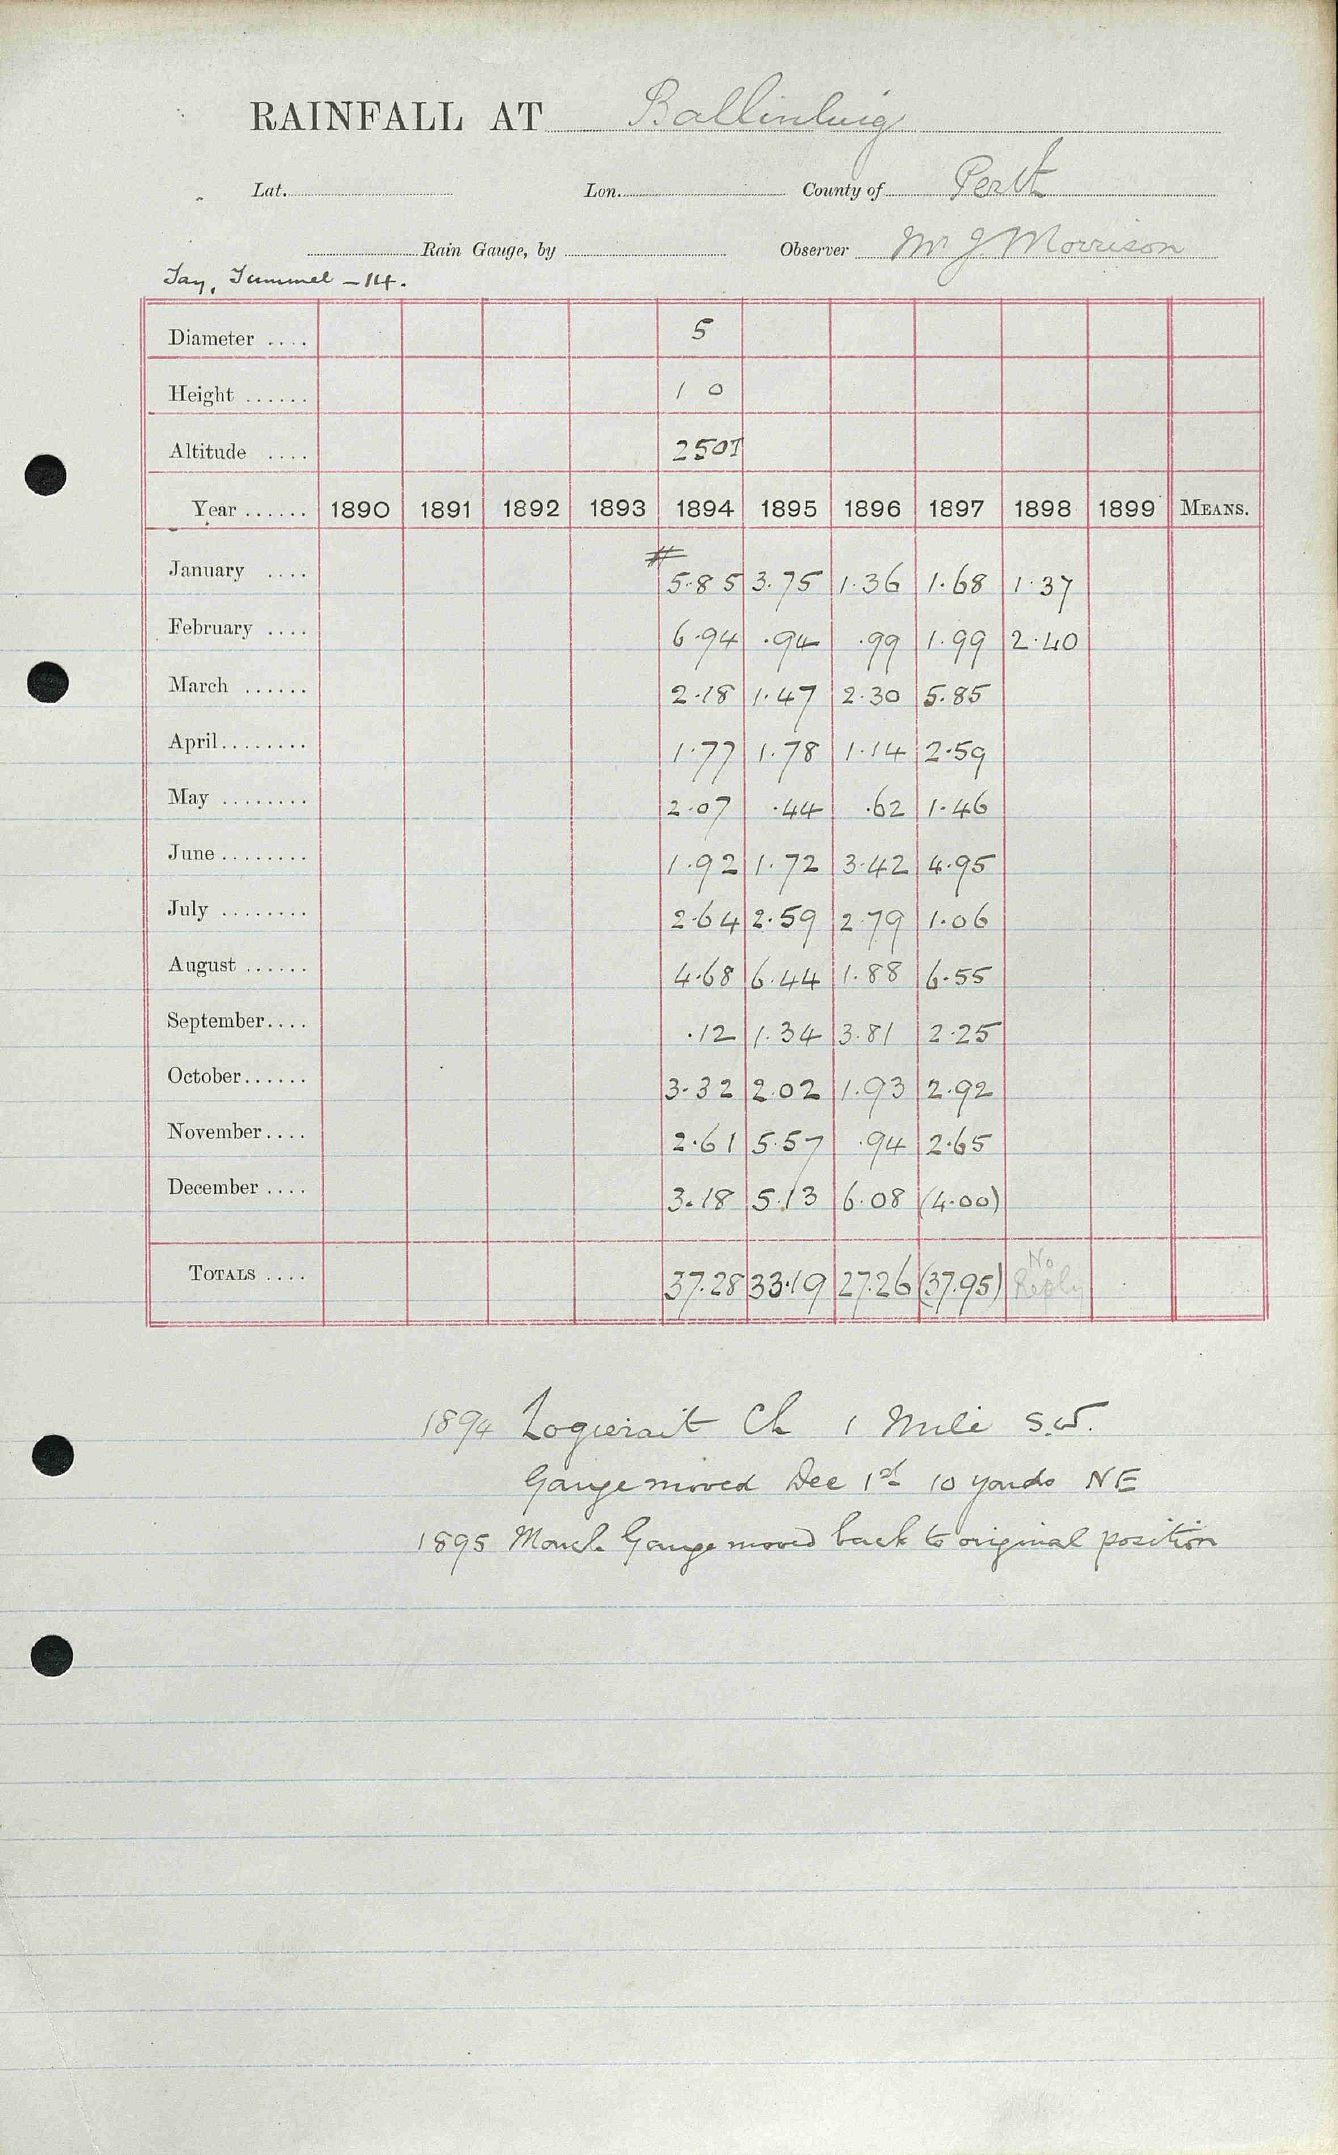 RAINFALL AT Ballinluig
Lat. Lon. County of Perth
Rain Gauge, by Observer Mr J. Morrison
Tay, Tummel - 14.
Diameter .... 5
Height ...... 1 0
Altitude .... 250T
Year ...... 1890 1891 1892 1893 1894 1895 1896 1897 1898 1899 MEANS.
#
January .... 5.85 3.75 1.36 1.68 1.37
February .... 6.94 .94 .99 1.99 2.40
March ...... 2.18 1.47 2.30 5.85
April........ 1.77 1.78 1.14 2.59
May ........ 2.07 .44 .62 1.46
June ........ 1.92 1.72 3.42 4.95
July ........ 2.64 2.59 2.79 1.06
August ...... 4.68 6.44 1.88 6.55
September.... .12 1.34 3.81 2.25
October...... 3.32 2.02 1.93 2.92
November.... 2.61 5.57 .94 2.65
December .... 3.18 5.13 6.08 (4.00)
TOTALS .... 37.28 33.19 27.26 (37.95) No Reply
1894 Logierait Ch 1 Mile S.W.
Gauge moved Dec 1st 10 yards NE
1895 March Gauge moved back to original position